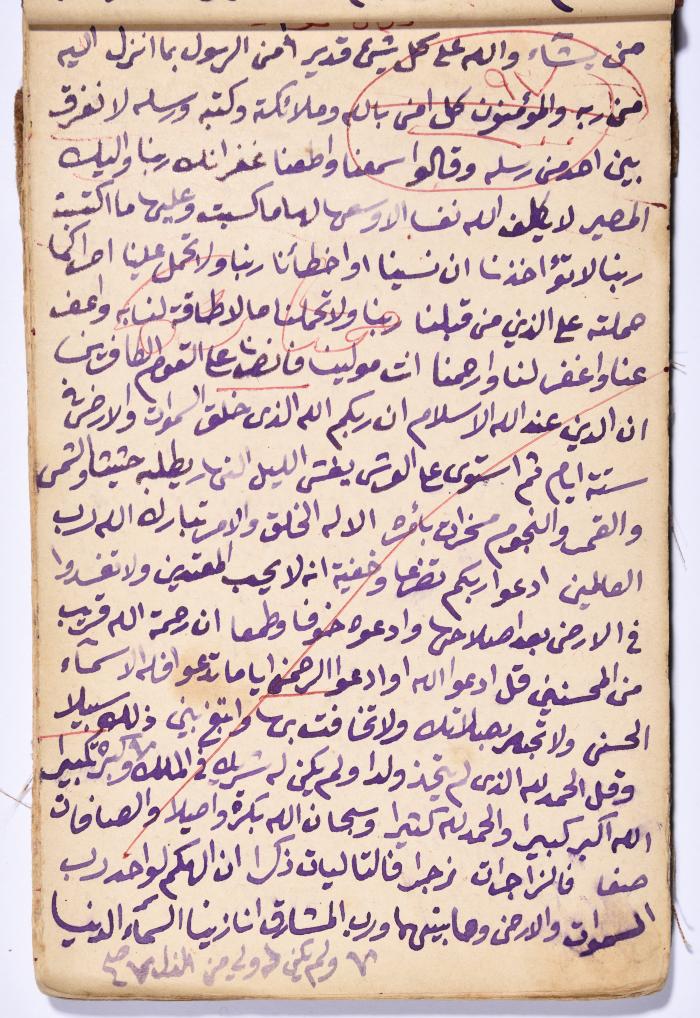 من يشآء والله على كل شيئ قدير امن الرسول بما انزل اليه
من ربه والمؤمنون كل امن بالله وملائكته وكتبه ورسله لا نفرق
بين احد من رسله وقالوا سمعنا واطعنا غفرانك ربنا واليك
المصير لا يكلف الله نفسا الا وسعها لها ما كسبت وعليها ما اكتسبت
ربنا لا تؤاخذنا ان نسينا او اخطأنا ربنا ولا تحمل علينا اصرا كما
حملته على الذين من قبلنا ربنا ولا تحملنا ما لا طاقة لنا به واعف
عنا واغفر لنا وارحمنا انت مولينا فانصرنا على القوم الكافرين
ان الدين عند الله الاسلام ان ربكم الله الذى خلق السموات والارض فى
ستة ايام ثم استوى على العرش يغشى الليل النهار يطلبه حثيثا والشمس
والقمر والنجوم مسخرات بأمره الا له الخلق والامر تبارك الله رب
العالمين ادعوا ربكم تضرعا وخفية انه لا يحب المعتدين ولا تفسدوا
في الارض بعد اصلاحها وادعوه خوفا وطمعا ان رحمة الله قريب
من المحسنين قل ادعوا الله او ادعوا الرحمن ايا ما تدعوا فله الاسمآء
الحسنى ولا تجهر بصلاتك ولا تخافت بها وابتغ بين ذلك سبيلا
وقل الحمد لله الذى لم يتخذ ولدا ولم يكن له شريك في الملك ٧ وكبره تكبيرا
الله اكبر كبيرا والحمد لله كثيرا وسبحان الله بكرة واصيلا والصافات
صفا فالزاجرات زجرا فالتاليات ذكرا ان الهكم لواحد رب
السموات والارض وما بينهما ورب المشارق انا زينا السمآء الدنيا
٧ ولم يكن له ولي من الذل ٧ صح
٩٧